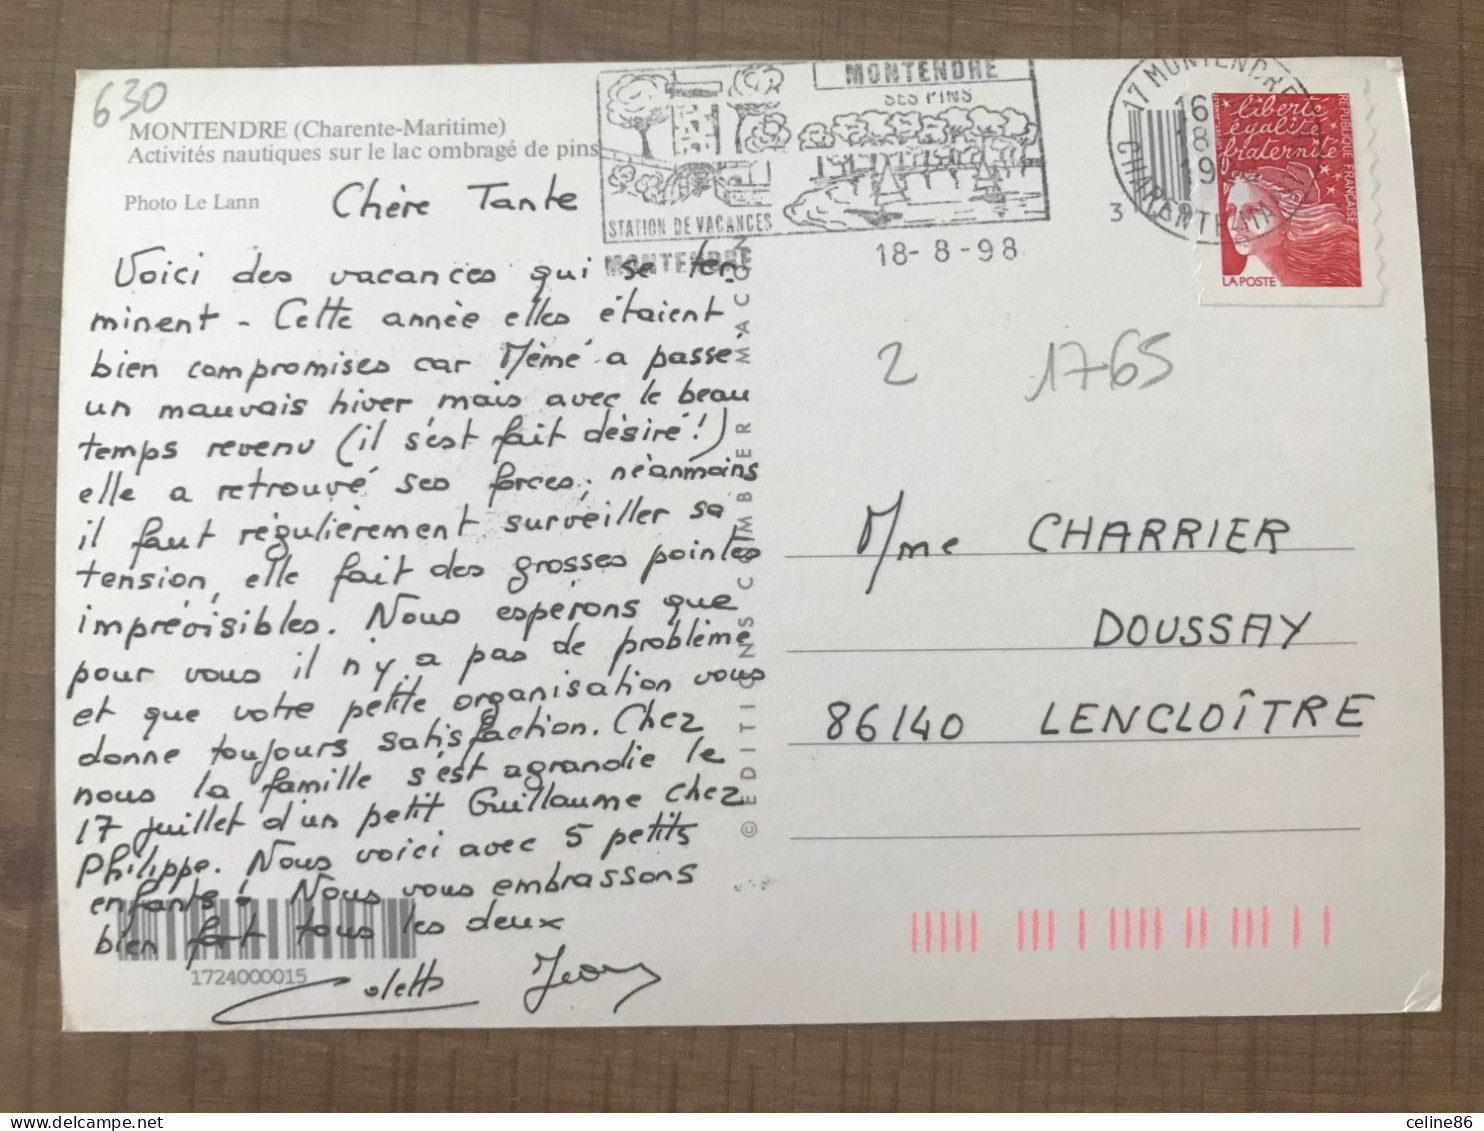 630
MONTENDRE (Charente-Maritime)
Activités nautiques sur le lac ombragé de pins
Photo Le Lann
Chère Tante
Voici des vacances qui se ter-
minent - Cette année elles étaient
bien compromises car Mémé a passé
un mauvais hiver mais avec le beau
temps revenu (il s'est fait désiré!)
elle a retrouvé ses forces, néanmoins
il faut régulièrement surveiller sa
tension, elle fait des grosses pointes
imprévisibles. Nous espérons que
pour vous il n'y a pas de problème
et que votre petite organisation vous
donne toujours satisfaction. Chez
nous la famille s'est agrandie le
17 juillet d'un petit Guillaume chez
Philippe. Nous voici avec 5 petits
enfants! Nous vous embrassons
bien fort tous les deux
Colette Jean
1724000015
© EDITIONS COMBIER MACON
MONTENDRE
SES PINS
STATION DE VACANCES
MONTENDRE
18-8-98
17 MONTENDRE
16
18
19
CHARENTE MAR
liberté
égalité
fraternité
REPUBLIQUE FRANÇAISE
LA POSTE
2
1765
Mme CHARRIER
DOUSSAY
86140 LENCLOÎTRE
celine86